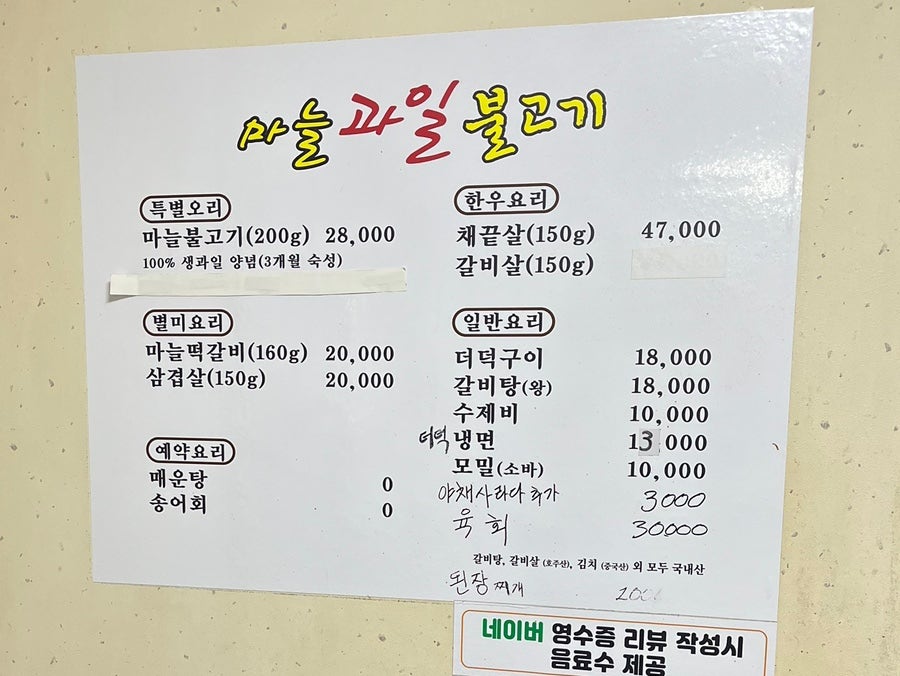 마늘 과일 불고기
특별오리
마늘불고기(200g) 28,000
100% 생과일 양념(3개월 숙성)
별미요리
마늘떡갈비(160g) 20,000
삼겹살(150g) 20,000
예약요리
매운탕 0
송어회 0
한우요리
채끝살(150g) 47,000
갈비살(150g)
일반요리
더덕구이 18,000
갈비탕(왕) 18,000
수제비 10,000
더덕 냉면 13,000
모밀(소바) 10,000
야채사라다 추가 3000
육회 30000
갈비탕, 갈비살(호주산), 김치(중국산) 외 모두 국내산
된장찌개
네이버 영수증 리뷰 작성시
음료수 제공